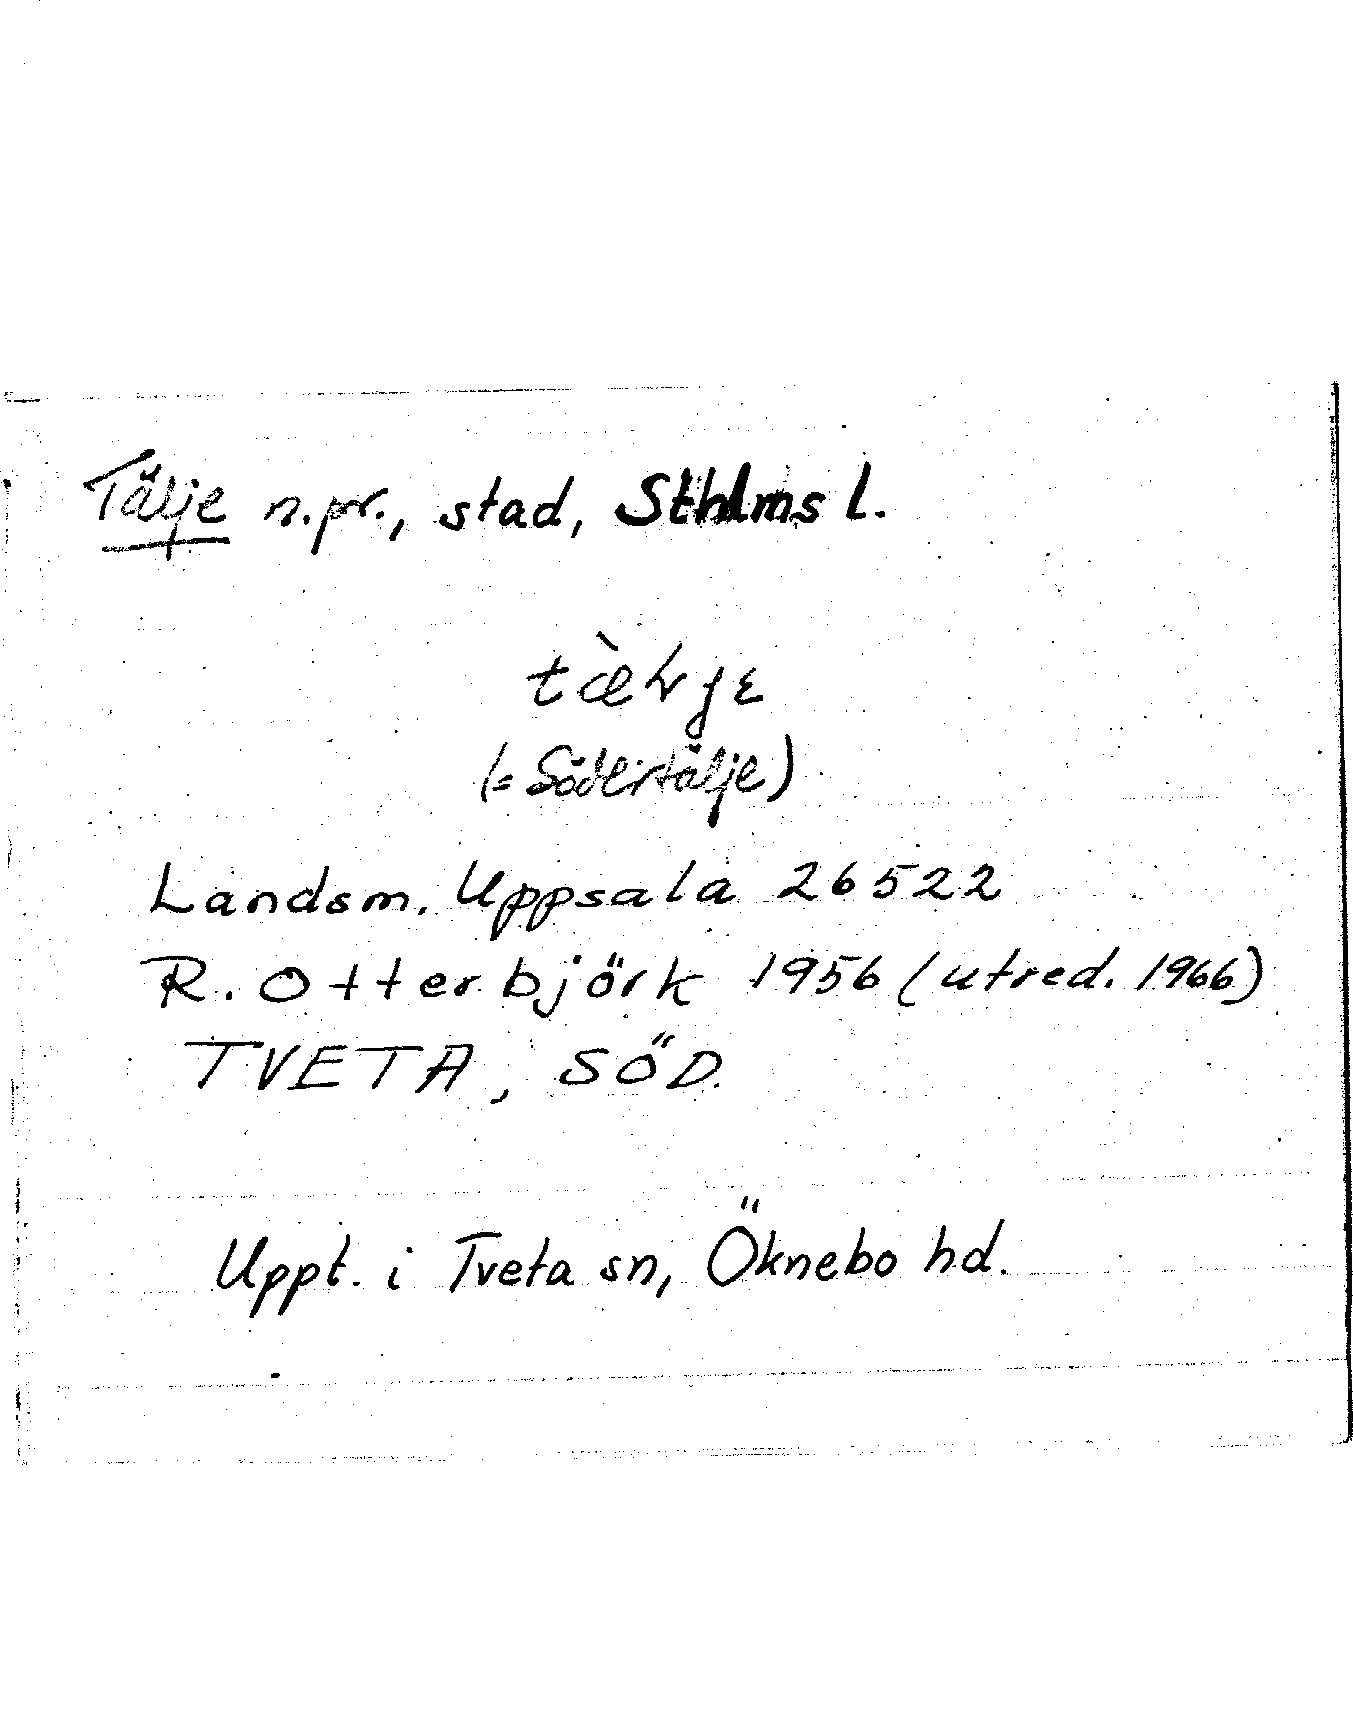 Tälje n.pr., stad, Sthlms l.
(= Södertälje)
Landsm. Uppsala 26522
R. Otterbjörk 1956 (utred. 1966)
TVETA, SÖD.
Uppt. i Tveta sn, Öknebo hd.